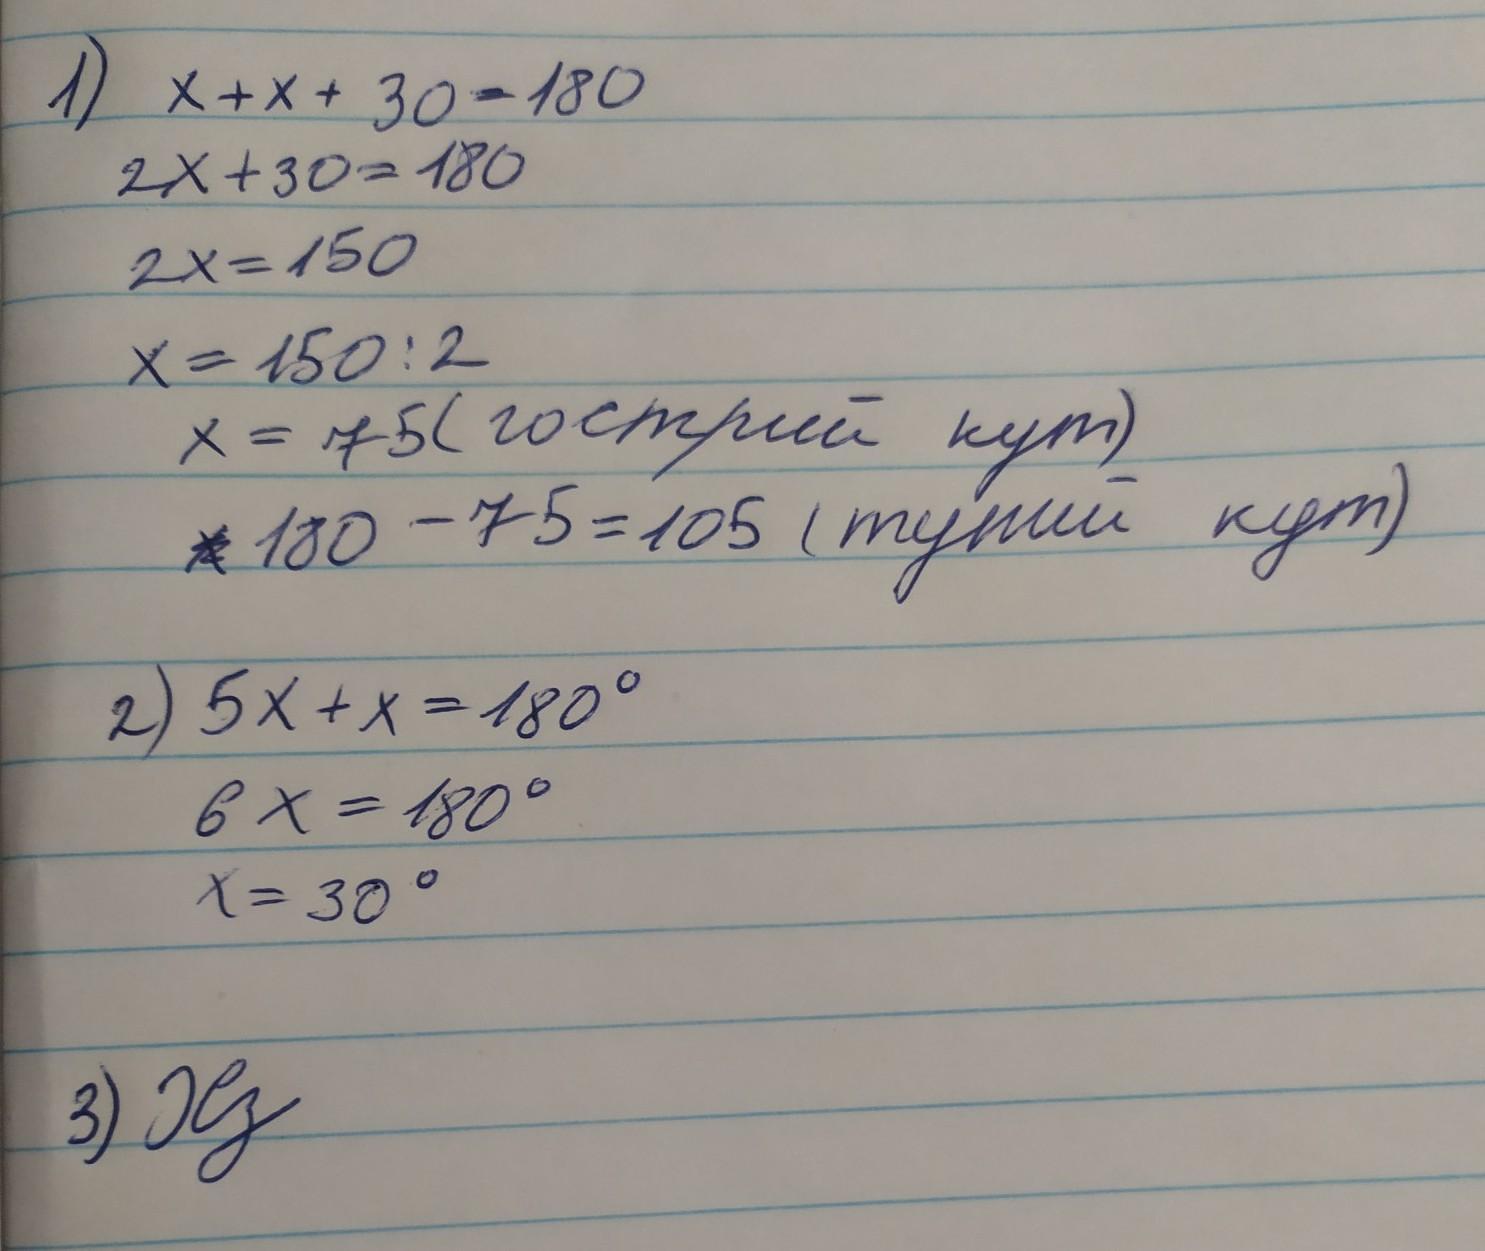 1) x + x + 30 = 180
2x + 30 = 180
2x = 150
x = 150 : 2
x = 75 (гострий кут)
180 - 75 = 105 (тупий кут)
2) 5x + x = 180°
6x = 180°
x = 30°
3) Хз